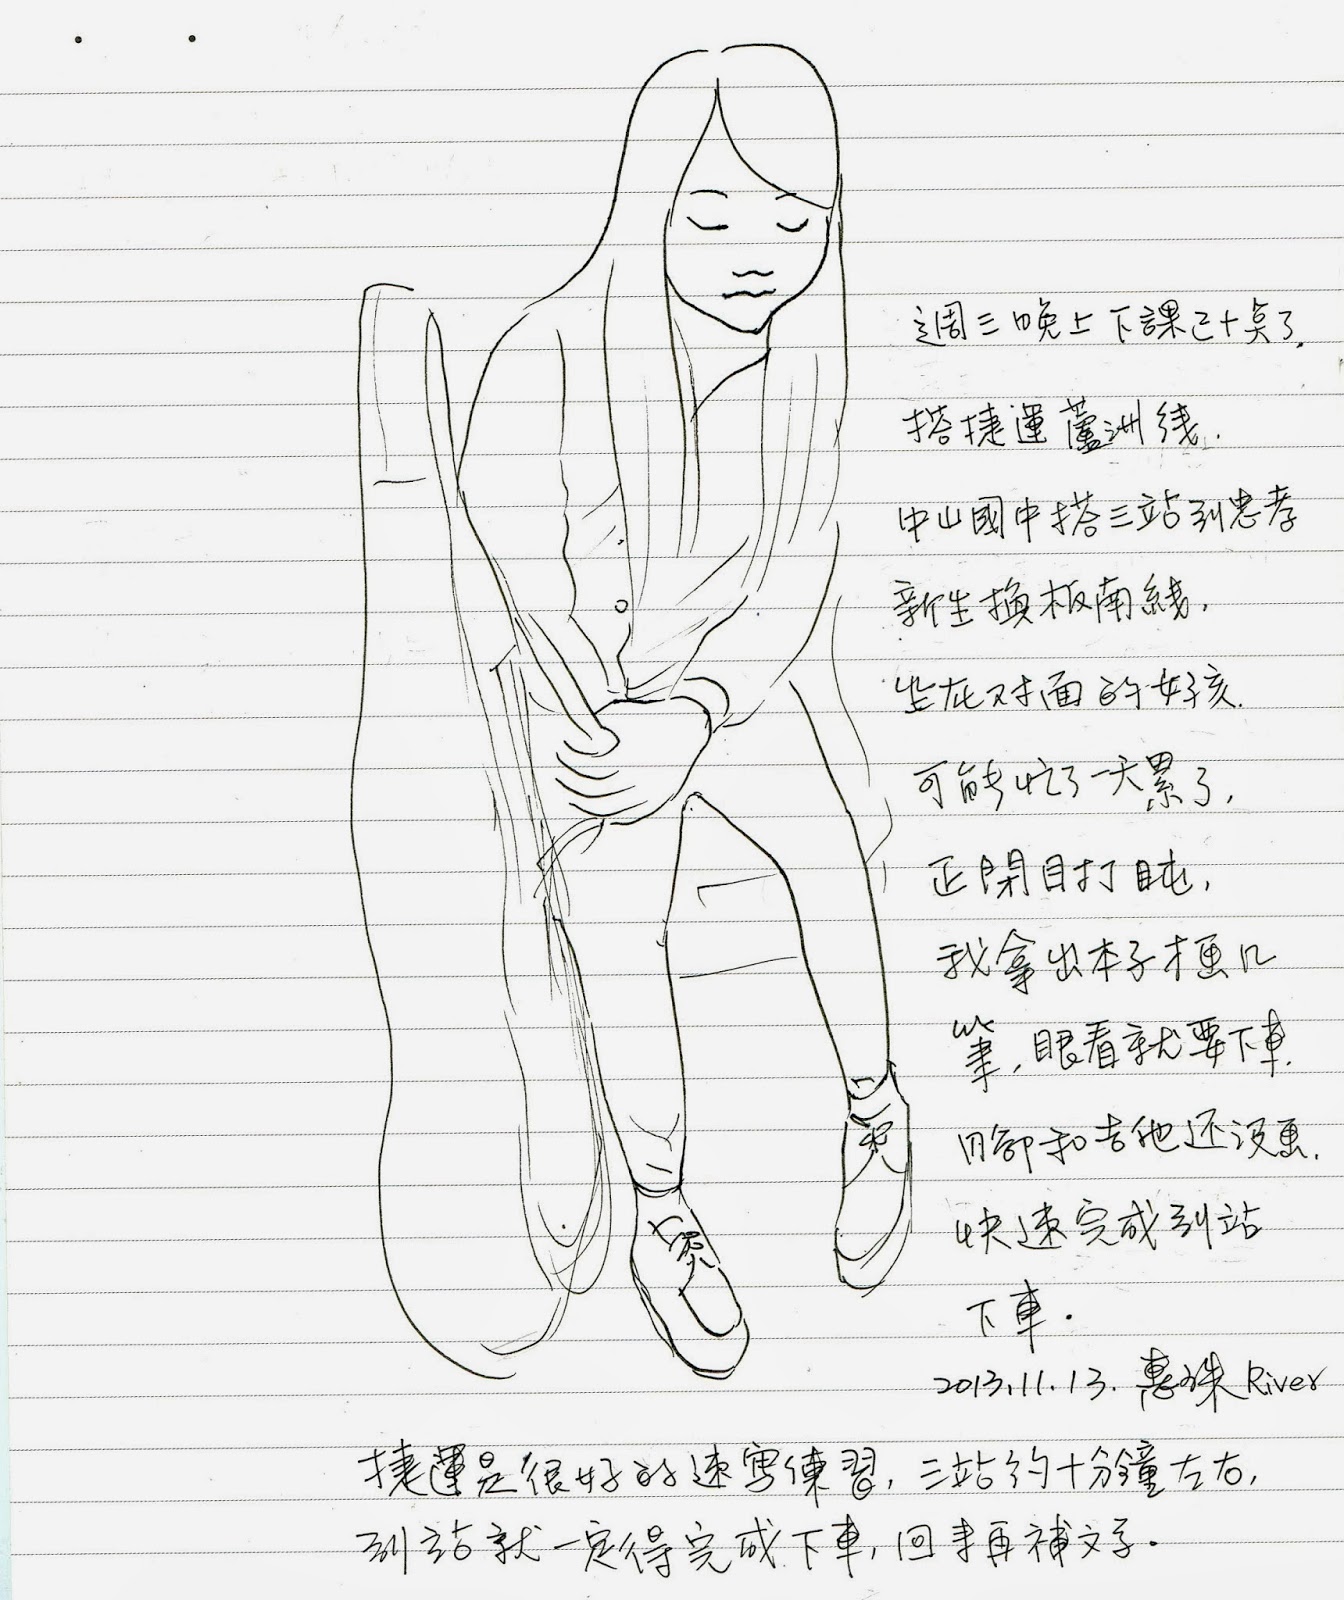 週三晚上下課已十點了.
搭捷運蘆洲线.
中山國中搭三站到忠孝
新生換板南綫.
坐在对面的女孩.
可能忙了一天累了,
正閉目打盹,
我拿出本子才畫几
筆,眼看就要下車.
腳和吉他还没畫.
快速完成到站
下車.
2013.11.13. 惠珠 River
捷運是很好的速寫練習,三站約十分鐘左右,
到站就一定得完成下車,回家再補文字.